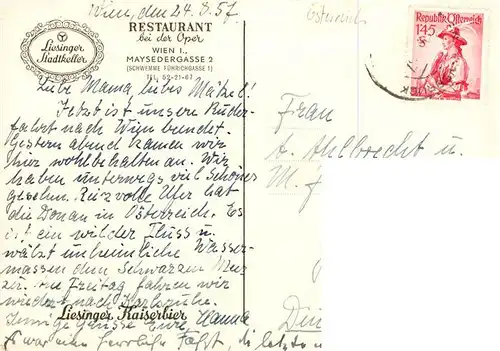 Wien, den 24.8.57
Österreich
Liesinger
Stadtkeller
RESTAURANT
bei der Oper
WIEN I.,
MAYSEDERGASSE 2
(SCHWEMME FÜHRICHGASSE 1)
TEL. 52-21-67
Republik Österreich
1S45
Liebe Mama, liebes
Jetzt ist unsere Ruder-
fahrt nach Wien beendet.
Gestern abend kamen wir
hier wohlbehalten an. Wir
haben unterwegs viel Schönes
gesehen. Reizvolle Ufer hat
die Donau in Österreich. Es
ist ein wilder Fluss u.
wälzt unheimliche Wasser-
massen dem Schwarzen Meer
zu. Am Freitag fahren wir
wieder nach Karlsruhe.
Liesinger Kaiserbier
Innige Grüsse Eure Hanna
Es war eine herrliche Fahrt, die letzte
Frau
v. u.
M.